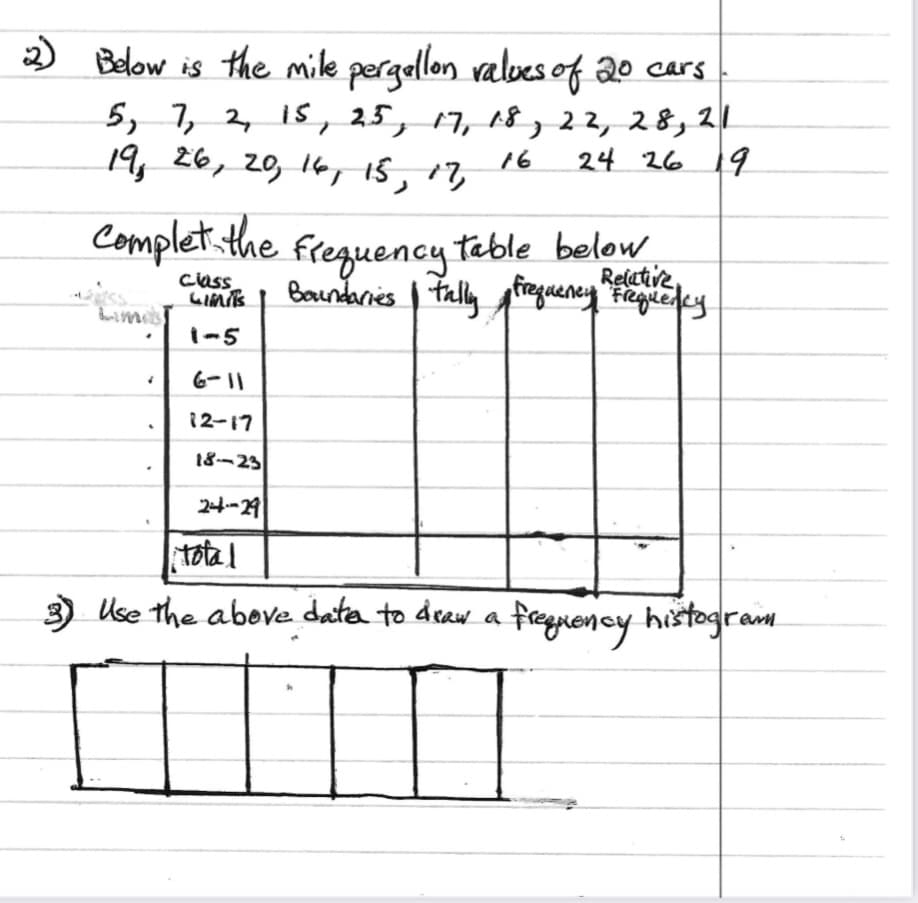 2) Below is the mile pergallon values of 20 cars.
5, 7, 2, 15, 25, 17, 18, 22, 28, 21
19, 26, 20, 16, 15, 17, 16 24 26 19
Complet the frequency table below
Class Limits Boundaries tally frequency Relative Frequency
Limits
1-5
6-11
12-17
18-23
24-29
total
3) Use the above data to draw a frequency histogram